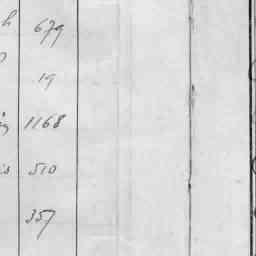 h 679
19
1168
is 510
357